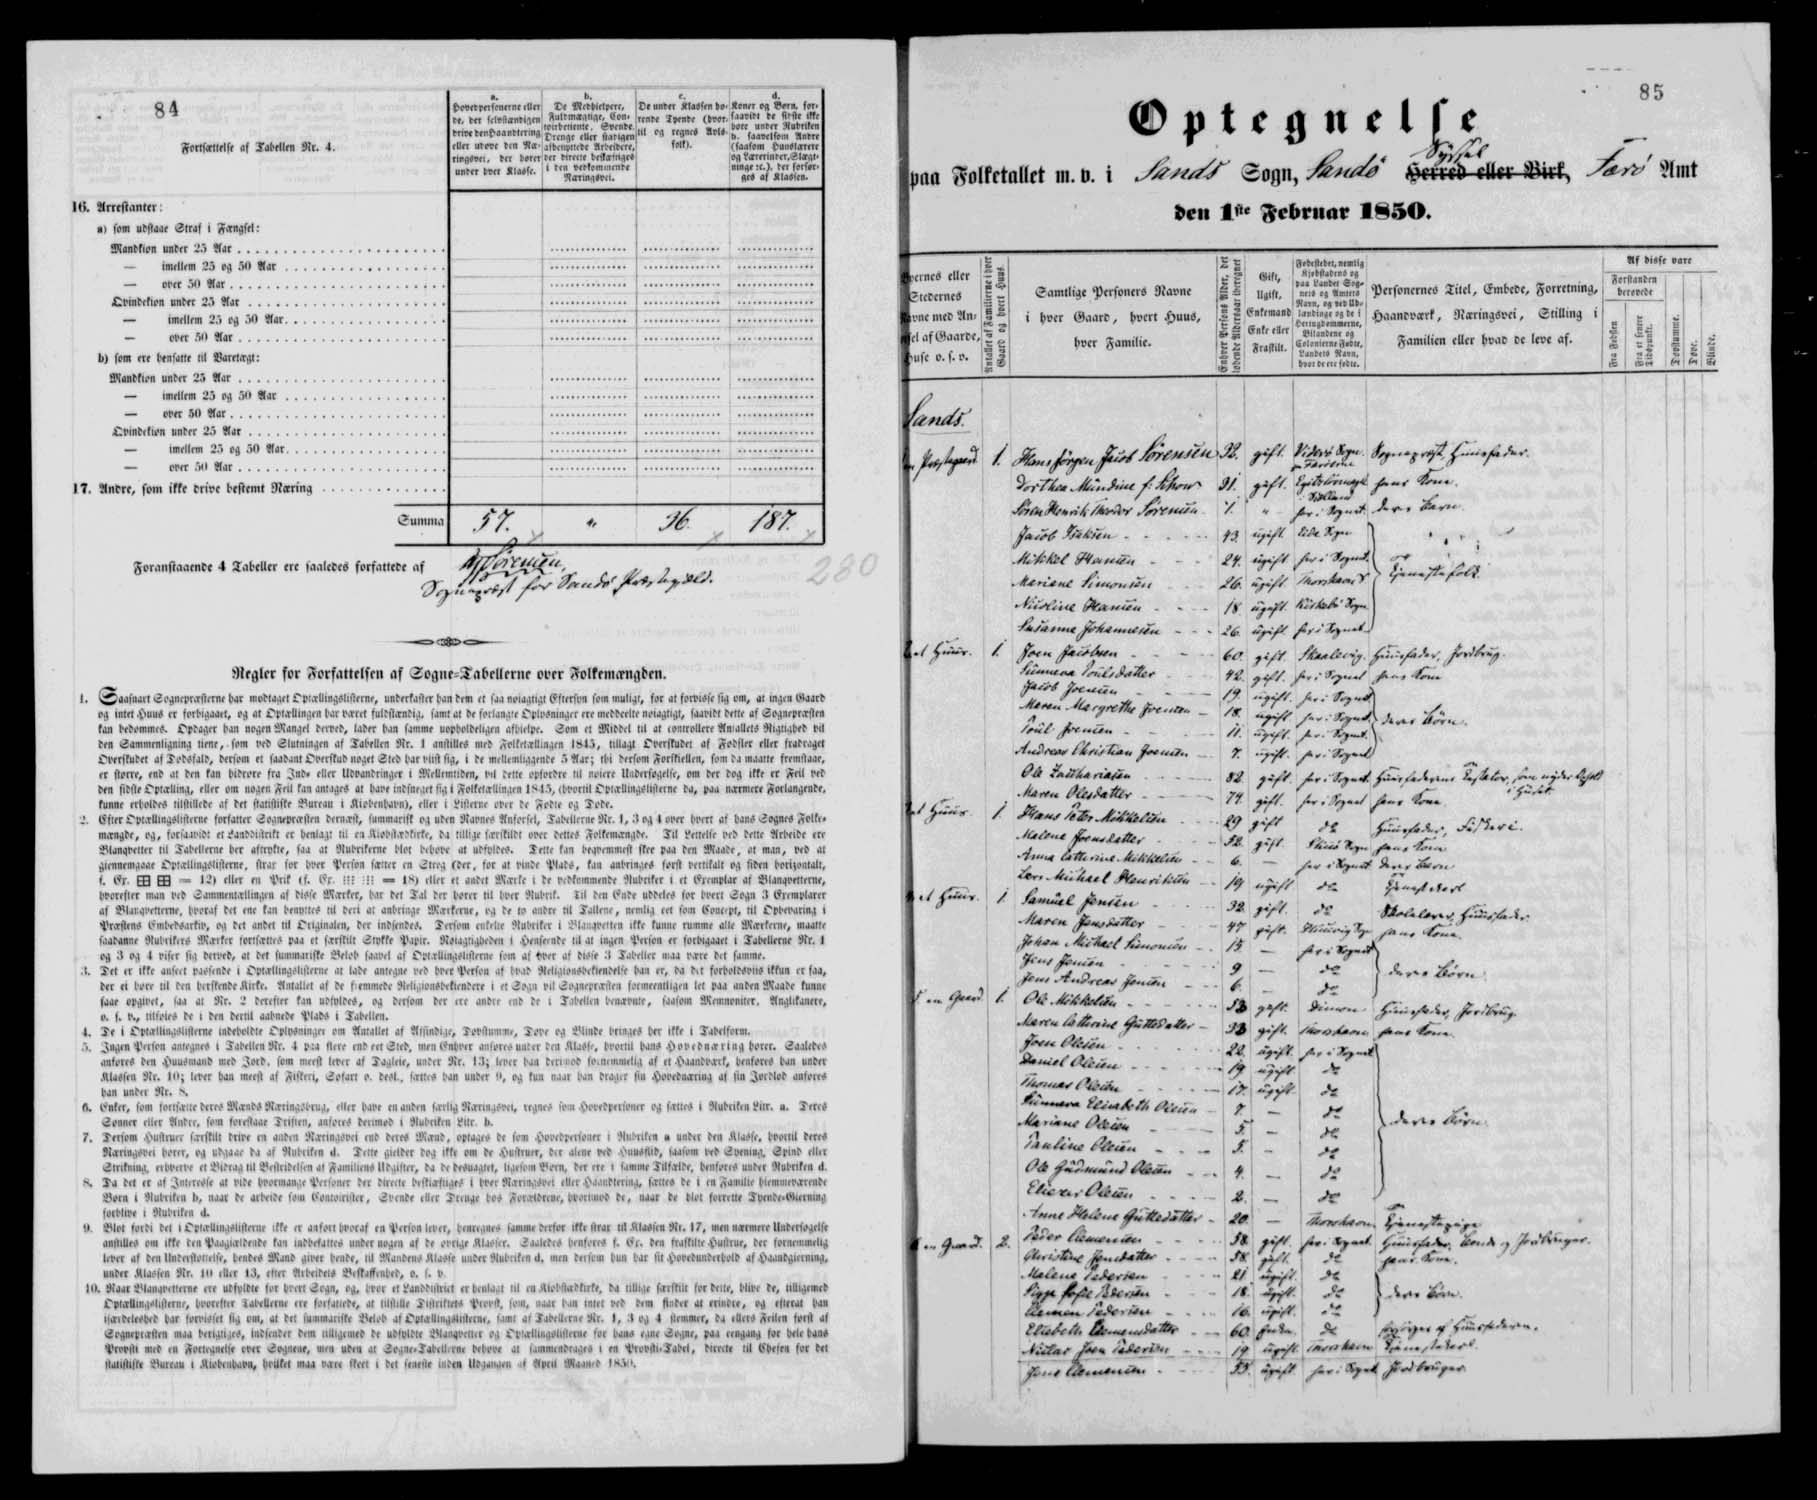 84
Fortsættelse af Tabellen Nr. 4.
a.
Hovedpersonerne eller de, der selvstændigen drive den Haandtering eller udøve den Næringsvei, der hører under hver Klasse.
b.
De Medhjelpere, Fuldmægtige, Contoirbetiente, Svende, Drenge eller stadigen afbenyttede Arbeidere, der directe beskæftiges i den vedkommende Næringsvei.
c.
De under Klassen hørende Tyende (hvortil og regnes Avlsfolk).
d.
Koner og Børn, forsaavidt de sidste ikke høre under Rubriken b. saavelsom Andre (saasom Huuslærere og Lærerinder, Slægtninge ꝛc.), der forsørges af Klassen.
16. Arrestanter:
a) som udstaae Straf i Fængsel:
Mandkiøn under 25 Aar
— imellem 25 og 50 Aar
— over 50 Aar
Qvindekiøn under 25 Aar
— imellem 25 og 50 Aar
— over 50 Aar
b) som ere hensatte til Varetægt:
Mandkiøn under 25 Aar
— imellem 25 og 50 Aar
— over 50 Aar
Qvindekiøn under 25 Aar
— imellem 25 og 50 Aar
— over 50 Aar
17. Andre, som ikke drive bestemt Næring
Summa 57. " 36. 187.
Foranstaaende 4 Tabeller ere saaledes forfattede af Sørensen,
Sognepræst for Sands Præstegjeld.
280
Regler for Forfattelsen af Sogne-Tabellerne over Folkemængden.
1. Saasnart Sognepræsterne har modtaget Optællingslisterne, underkaster han dem et saa nøiagtigt Eftersyn som muligt, for at forvisse sig om, at ingen Gaard
og intet Huus er forbigaaet, og at Optællingen har været fuldstændig, samt at de forlangte Oplysninger ere meddeelte nøiagtigt, saavidt dette af Sognepræsten
kan bedømmes. Opdager han nogen Mangel derved, lader han samme uopholdeligen afhielpe. Som et Middel til at controllere Antallets Rigtighed vil
den Sammenligning tiene, som ved Slutningen af Tabellen Nr. 1 anstilles med Folketællingen 1845, tillagt Overskudet af Fødsler eller fradraget
Overskudet af Dødsfald, dersom et saadant Overskud noget Sted har viist sig, i de mellemliggende 5 Aar; thi dersom Forskiellen, som da maatte fremstaae,
er større, end at den kan hidrøre fra Ind- eller Udvandringer i Mellemtiden, vil dette opfordre til nøiere Undersøgelse, om der dog ikke er Feil ved
den sidste Optælling, eller om nogen Feil kan antages at have indsneget sig i Folketællingen 1845, (hvortil Optællingslisterne da, paa nærmere Forlangende,
kunne erholdes tilstillede af det statistiske Bureau i Kiøbenhavn), eller i Listerne over de Fødte og Døde.
2. Efter Optællingslisterne forfatter Sognepræsten dernæst, summarisk og uden Navnes Anførsel, Tabellerne Nr. 1, 3 og 4 over hvert af hans Sognes Folke-
mængde, og, forsaavidt et Landdistrikt er henlagt til en Kiøbstædkirke, da tillige særskildt over dettes Folkemængde. Til Lettelse ved dette Arbeide ere
Blanqvetter til Tabellerne her aftrykte, saa at Rubrikerne blot behøve at udfyldes. Dette kan beqvemmest skee paa den Maade, at man, ved at
giennemgaae Optællingslisterne, strax for hver Person sætter en Streg (der, for at vinde Plads, kan anbringes først vertikalt og siden horizontalt,
f. Ex. ⊞ ⊞ = 12) eller en Prik (f. Ex. ⁝⁝⁝ ⁝⁝⁝ = 18) eller et andet Mærke i de vedkommende Rubriker i et Exemplar af Blanqvetterne,
hvorefter man ved Sammentællingen af disse Mærker, har det Tal der hører til hver Rubrik. Til den Ende uddeles for hvert Sogn 3 Exemplarer
af Blanqvetterne, hvoraf det ene kan benyttes til deri at anbringe Mærkerne, og de to andre til Tallene, nemlig eet som Concept, til Opbevaring i
Præstens Embedsarkiv, og det andet til Originalen, der indsendes. Dersom enkelte Rubriker i Blanqvetten ikke kunne rumme alle Mærkerne, maatte
saadanne Rubrikers Mærker fortsættes paa et særskilt Stykke Papir. Nøiagtigheden i Henseende til at ingen Person er forbigaaet i Tabellerne Nr. 1
og 3 og 4 viser sig derved, at det summariske Beløb saavel af Optællingslisterne som af hver af disse 3 Tabeller maa være det samme.
3. Det er ikke anseet passende i Optællingslisterne at lade antegne ved hver Person af hvad Religionsbekiendelse han er, da det forholdsviis ikkun er faa,
der ei høre til den herskende Kirke. Antallet af de fremmede Religionsbekiendere i et Sogn vil Sognepræsten formeentligen let paa anden Maade kunne
faae opgivet, saa at Nr. 2 derefter kan udfyldes, og dersom der ere andre end de i Tabellen benævnte, saasom Mennoniter, Anglikanere,
o. s. v., tilføies de i den dertil aabnede Plads i Tabellen.
4. De i Optællingslisterne indeholdte Oplysninger om Antallet af Afsindige, Døvstumme, Døve og Blinde bringes her ikke i Tabelform.
5. Ingen Person antegnes i Tabellen Nr. 4 paa flere end eet Sted, men Enhver anføres under den Klasse, hvortil hans Hovednæring hører. Saaledes
anføres den Huusmand med Jord, som meest lever af Dagleie, under Nr. 13; lever han derimod fornemmelig af et Haandværk, henføres han under
Klassen Nr. 10; lever han meest af Fiskeri, Søfart o. desl., sættes han under 9, og kun naar han drager sin Hovednæring af sin Jordlod anføres
han under Nr. 8.
6. Enker, som fortsætte deres Mænds Næringsbrug, eller have en anden særlig Næringsvei, regnes som Hovedpersoner og sættes i Rubriken Litr. a. Deres
Sønner eller Andre, som forestaae Driften, anføres derimod i Rubriken Litr. b.
7. Dersom Hustruer særskilt drive en anden Næringsvei end deres Mænd, optages de som Hovedpersoner i Rubriken a under den Klasse, hvortil deres
Næringsvei hører, og udgaae da af Rubriken d. Dette gielder dog ikke om de Hustruer, der alene ved Huusflid, saasom ved Syening, Spind eller
Strikning, erhverve et Bidrag til Bestridelsen af Familiens Udgifter, da de desuagtet, ligesom Børn, der ere i samme Tilfælde, henføres under Rubriken d.
8. Da det er af Interesse at vide hvormange Personer der directe beskiæftiges i hver Næringsvei eller Haandtering, sættes de i en Familie hiemmeværende
Børn i Rubriken b, naar de arbeide som Contoirister, Svende eller Drenge hos Forældrene, hvorimod de, naar de blot forrette Tyende-Gierning
forblive i Rubriken d.
9. Blot fordi det i Optællingslisterne ikke er anført hvoraf en Person lever, henregnes samme derfor ikke strax til Klassen Nr. 17, men nærmere Undersøgelse
anstilles om ikke den Paagiældende kan indbefattes under nogen af de øvrige Klasser. Saaledes henføres f. Ex. den fraskilte Hustrue, der fornemmelig
lever af den Understøttelse, hendes Mand giver hende, til Mandens Klasse under Rubriken d, men dersom hun har sit Hovedunderhold af Haandgierning,
under Klassen Nr. 10 eller 13, efter Arbeidets Beskaffenhed, o. s. v.
10. Naar Blanqvetterne ere udfyldte for hvert Sogn, og, hvor et Landdistrict er henlagt til en Kiøbstædkirke, da tillige særskilt for dette, blive de, tilligemed
Optællingslisterne, hvorefter Tabellerne ere forfattede, at tilstille Distriktets Provst, som, naar han intet ved dem finder at erindre, og efterat han
isærdeleshed har forvisset sig om, at det summariske Beløb af Optællingslisterne, samt af Tabellerne Nr. 1, 3 og 4 stemmer, da ellers Feilen først af
Sognepræsten maa berigtiges, indsender dem tilligemed de udfyldte Blanqvetter og Optællingslisterne for hans egne Sogne, paa eengang for hele hans
Provsti med en Fortegnelse over Sognene, men uden at Sogne-Tabellerne behøve at sammendrages i en Provsti-Tabel, directe til Chefen for det
statistiske Bureau i Kiøbenhavn, hvilket maa være skeet i det seneste inden Udgangen af April Maaned 1850.
85
Optegnelse
paa Folketallet m. v. i Sands Sogn, Sandø Syssel Herred eller Birk, Færø Amt
den 1ste Februar 1850.
Byernes eller Stedernes Navne med An- af Gaarde, Huse o. s. v.
Antallet af Familierne i hver Gaard og hvert Huus.
Samtlige Personers Navne i hver Gaard, hvert Huus, hver Familie.
Enhver Persons Alder, det løbende Aldersaar iberegnet
Gift, Ugift, Enkemand Enke eller Fraskilt.
Fødestedet, nemlig Kjøbstadens og paa Landet Sognets og Amtets Navn, og ved Udlændinge og de i Hertugdømmerne, Bilandene og Colonierne Fødte, Landets Navn, hvor de ere fødte.
Personernes Titel, Embede, Forretning, Haandværk, Næringsvei, Stilling i Familien eller hvad de leve af.
Af disse vare
Forstanden berøvede
Fra Fødslen
Fra et senere Tidspunkt.
Døvstumme.
Døve.
Blinde.
Sands.
Præstegaard 1. Hans Jørgen Jacob Sørensen 32. gift. Viderø Sogn Sognepræst, Huusfader.
Dorthea Mündine f: Schow 31. gift. hans Kone.
Søren Henrik Theodor Sørensen 1. " her i Sognet deres Barn.
Jacob Isaksen 43. ugift. Sogn
Mikkel Hansen 24. ugift her i Sognet Tjenestefolk.
Mariane Simonsen 26. ugift Thorshavn
Nicoline Hansen 18. ugift. Kirkebø Sogn
Susanna Johannesen 26. ugift her i Sognet
et Huus. 1. Joen Jacobsen 60. gift. Skaalevig. Huusfader, Jordbrug.
Sunneva Poulsdatter 42. gift. her i Sognet hans Kone
Jacob Joensen 19. ugift. her i Sognet
Maren Margrethe Joensen 18. ugift her i Sognet deres Børn.
Poul Joensen 11. ugift. her i Sognet.
Andreas Christian Joensen 7. ugift. her i Sognet
Ole Zachariasen 82. gift. her i Sognet. Huusfaderens som nyder Ophold i Huset
Maren Olesdatter 74. gift. her i Sognet hans Kone
et Huus 1 Hans Peter Mikkelsen 29 gift do Huusfader, Fiskeri.
Malene Joensdatter 52. gift. Sogn hans Kone
Anna Cathrine Mikkelsen 6. — her i Sognet deres Barn
Michael Henriksen 19 ugift do Tjenestekarl
et Huus. 1 Samuel Jensen 32. gift. do Skolelærer, Huusfader
Maren Jensdatter 47 gift. hans Kone
Johan Michael Simonsen 15. — her i Sognet
Jens Jensen 9 — do deres Børn.
Jens Andreas Jensen 6. — do
5. en Gaard. 1. Ole Mikkelsen gift. Dimon Huusfader, Jordbrug
Maren Cathrine Guttesdatter gift. Thorshavn hans Kone
Joen Olesen 22. ugift. her i Sognet
Daniel Olesen 19 ugift. do
Thomas Olesen 17. ugift. do
Sunneva Elisabeth Olesen 7. — do
Mariane Olesen 5. — do deres Børn.
Pauline Olesen 5. — do
Ole Gudmund Olesen 4. — do
Eliezer Olesen 2. — do
Anne Helene Guttesdatter 20. — Thorshavn Tjenestepige
en Gaard. 2. Peder Clementsen 58. gift. her i Sognet Huusfader, Bonde og Jordbruger.
Christine Jensdatter 58. gift. do hans Kone.
Malene Pedersen 21 ugift. do
Pedersen 18. ugift. do deres Børn.
Clemen Pedersen 16. ugift. do
Elsebeth Clemensdatter 60. Enke. do forsørges af Huusfaderen.
Joen Pedersen 19. ugift. Thorshavn Tjenestekarl
Jens Clementsen 55. ugift. her i Sognet Jordbruger.